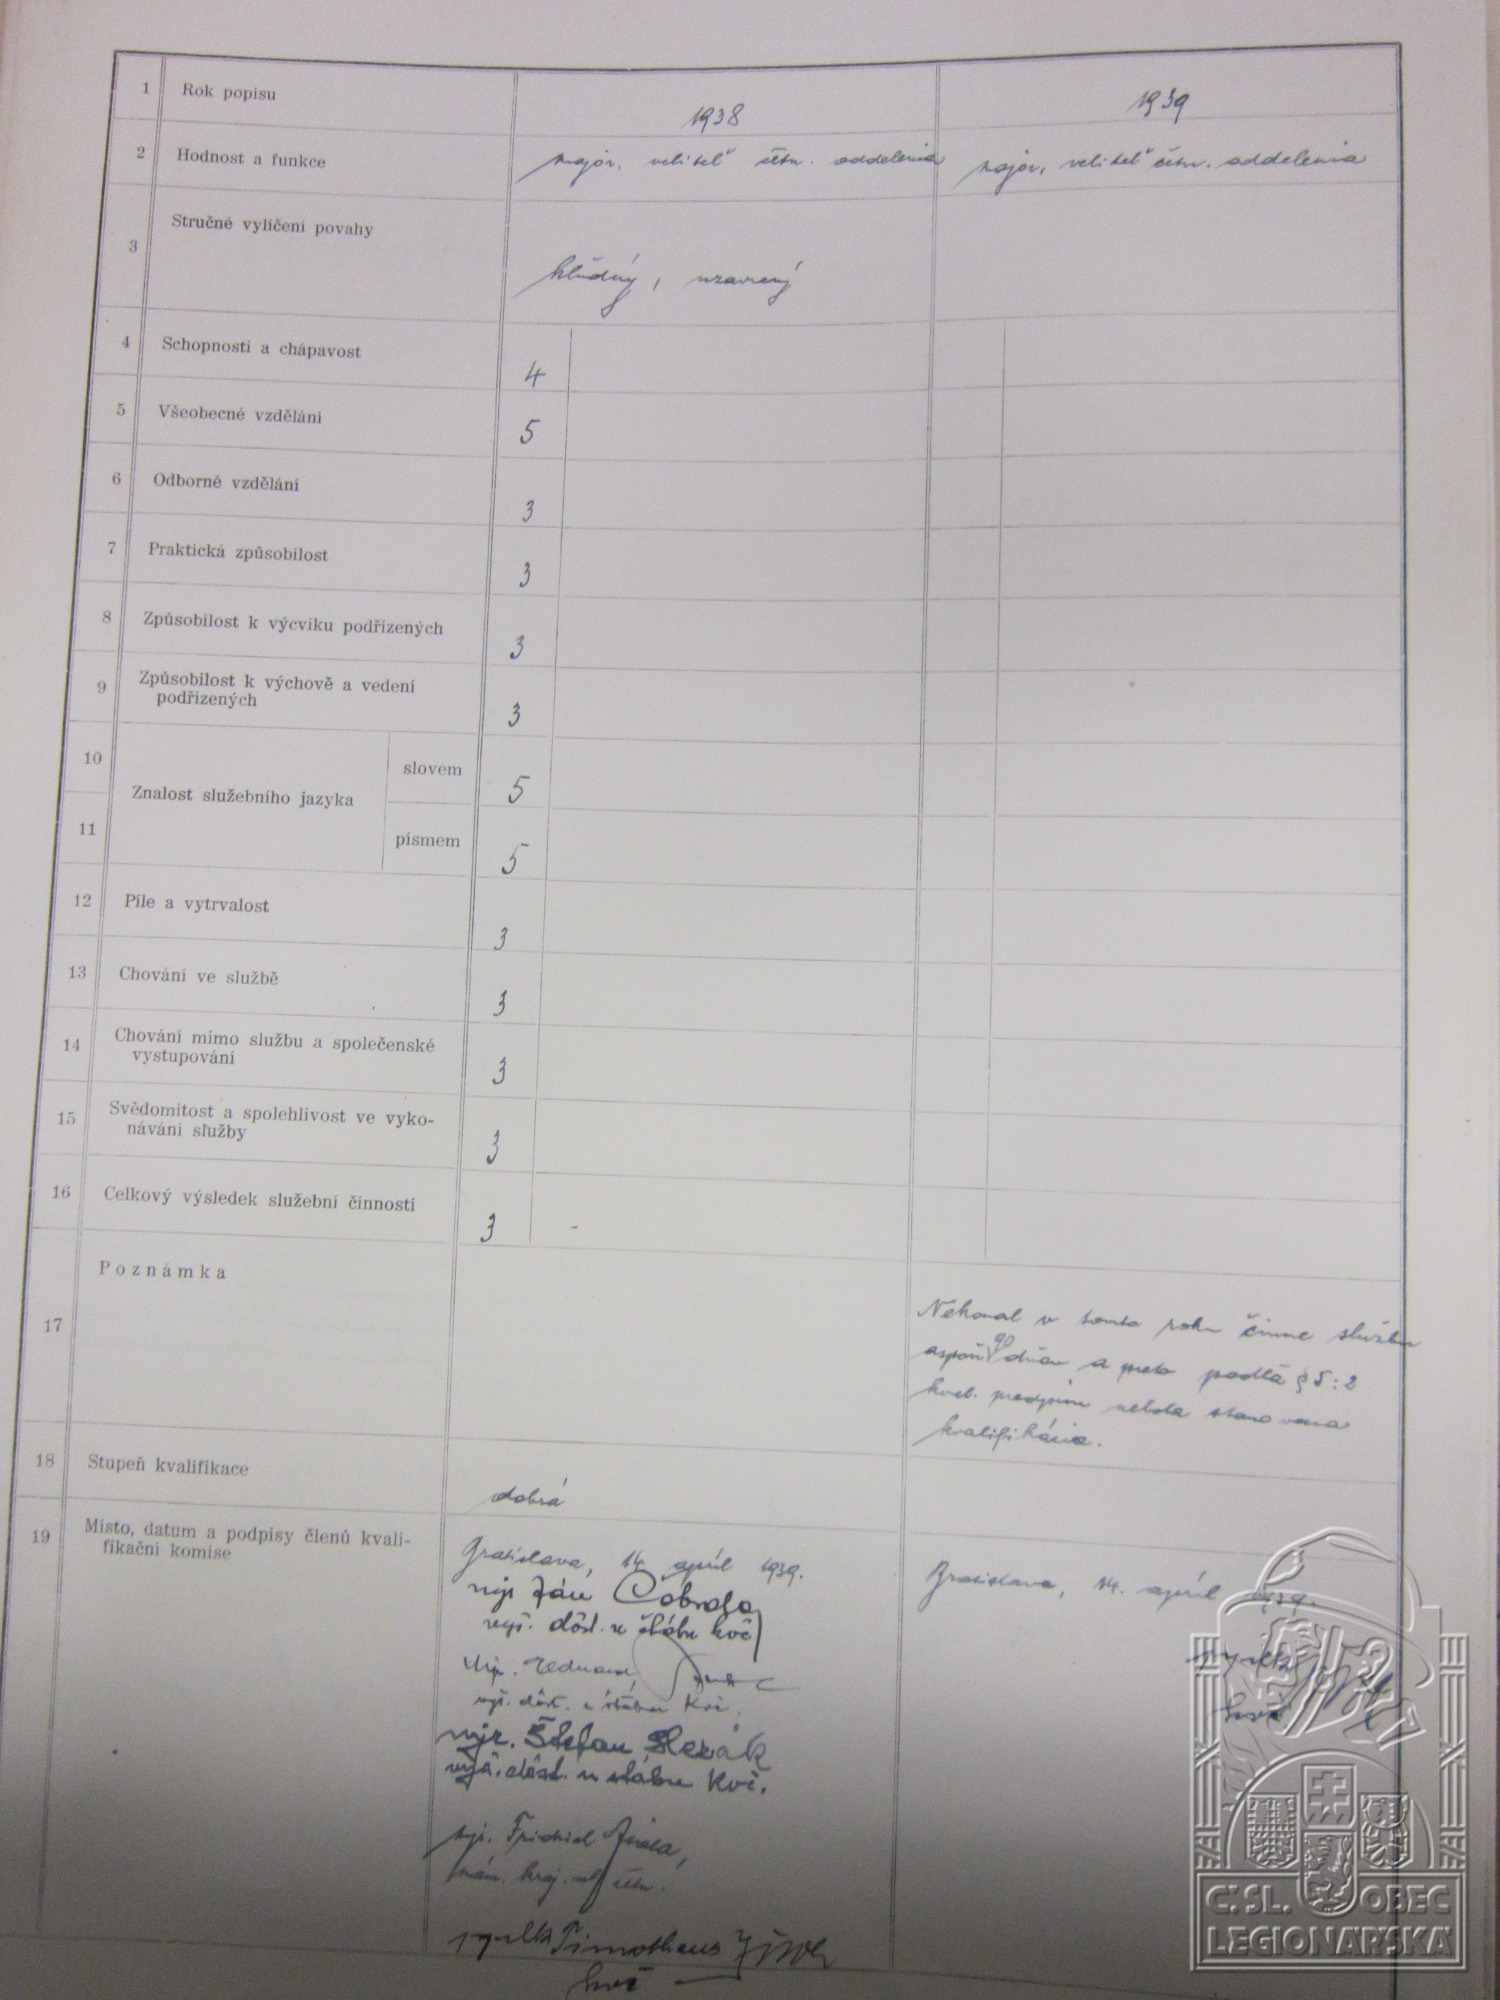 1 Rok popisu 1938 1939
2 Hodnost a funkce major, veliteľ četn. oddelenia major, veliteľ četn. oddelenia
3 Stručné vylíčení povahy kľudný, uzavrený
4 Schopnosti a chápavost 4
5 Všeobecné vzdělání 5
6 Odborné vzdělání 3
7 Praktická způsobilost 3
8 Způsobilost k výcviku podřízených 3
9 Způsobilost k výchově a vedení
podřízených 3
10 Znalost služebního jazyka slovem 5
11 písmem 5
12 Píle a vytrvalost 3
13 Chování ve službě 3
14 Chování mimo službu a společenské
vystupování 3
15 Svědomitost a spolehlivost ve vyko-
návání služby 3
16 Celkový výsledek služební činnosti 3 -
17 Poznámka
Nekonal v tomto roku činne službu
aspoň 90 dňov a preto podľa § 5:2
kval. predpisu nebola stanovena
kvalifikácia.
18 Stupeň kvalifikace dobrá
19 Místo, datum a podpisy členů kvali-
fikační komise
Bratislava, 14. apríl 1939.
Ján
vyš. dôst. u štábu kvč
Eduard
vyš. dôst. u štábu Kvč.
Štefan Slezák
vyš. dôst. u štábu Kvč.
Fridrich
kraj. vel. četn.
pplk Timotheus Ištok
kvč
Bratislava, 14. apríl 1939.
pplk
kvč
Č.SL. OBEC
LEGIONÁŘSKÁ